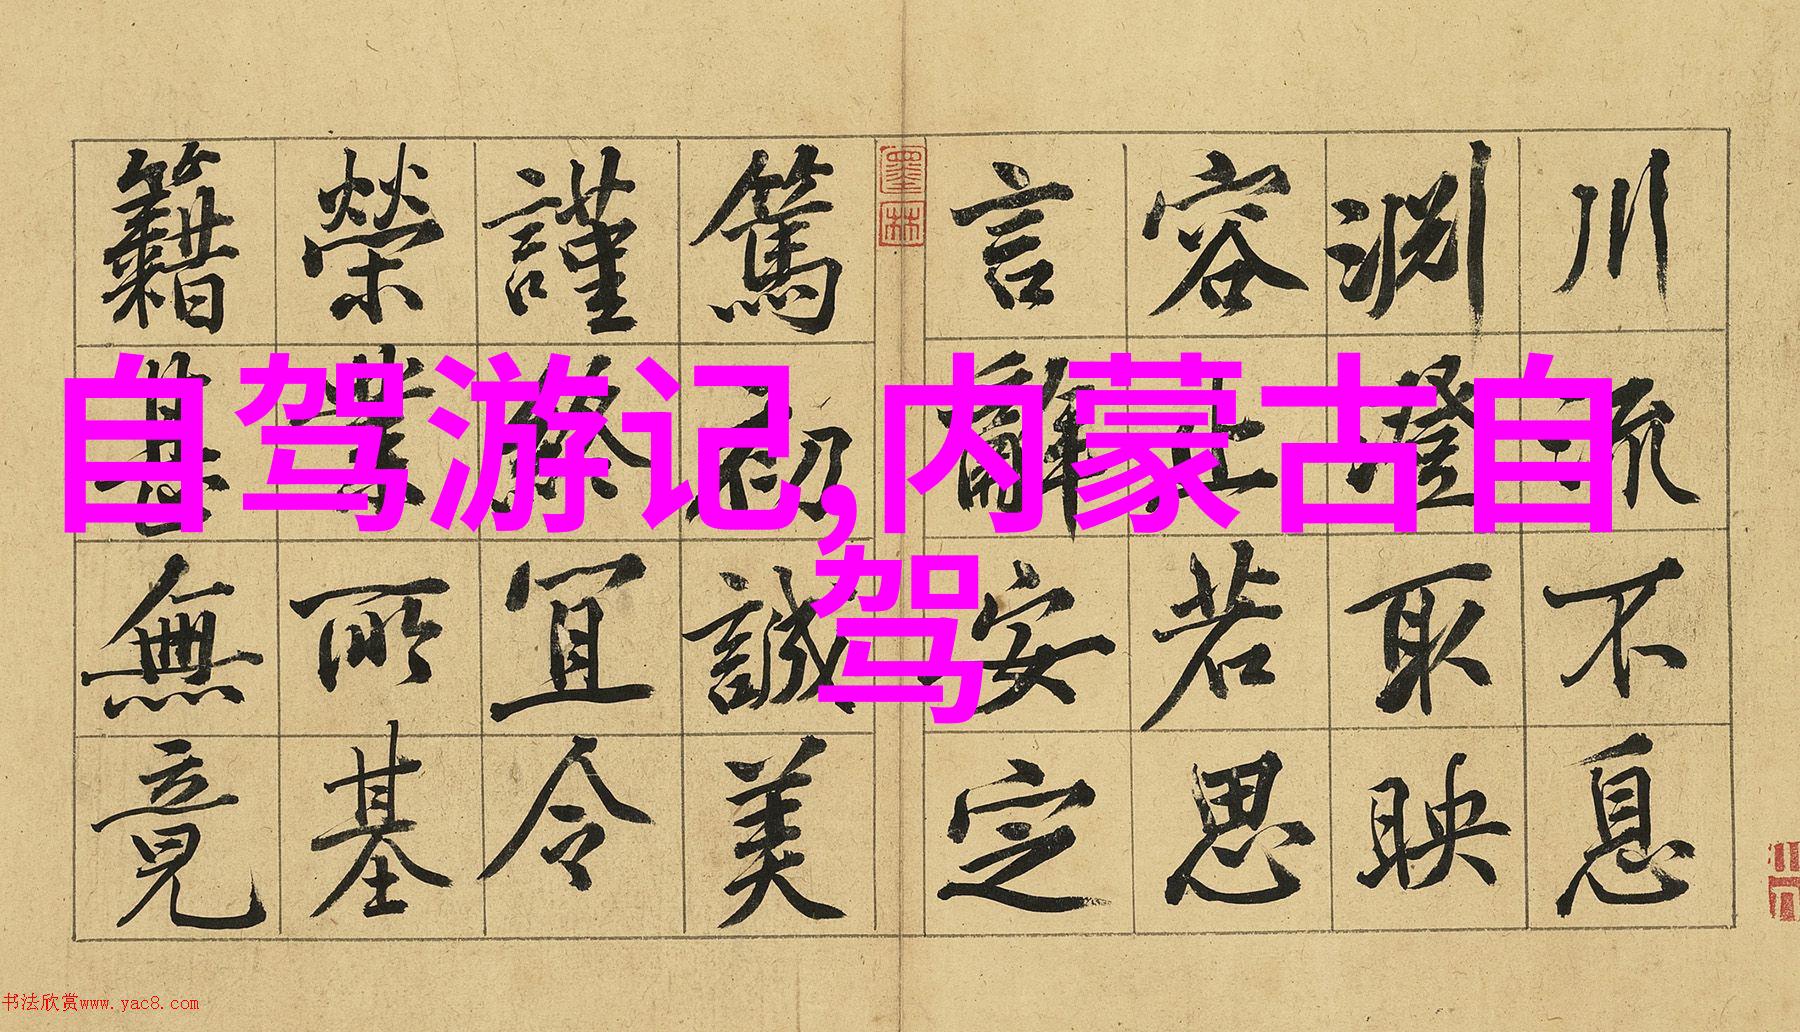 川流不息
淵澄取映
容止若思
言辭安定
墨林
篤初誠美
謹終宜令
榮業所基
籍甚無竟
自驾游记,内蒙古自
驾
书法欣赏www.yac8.com